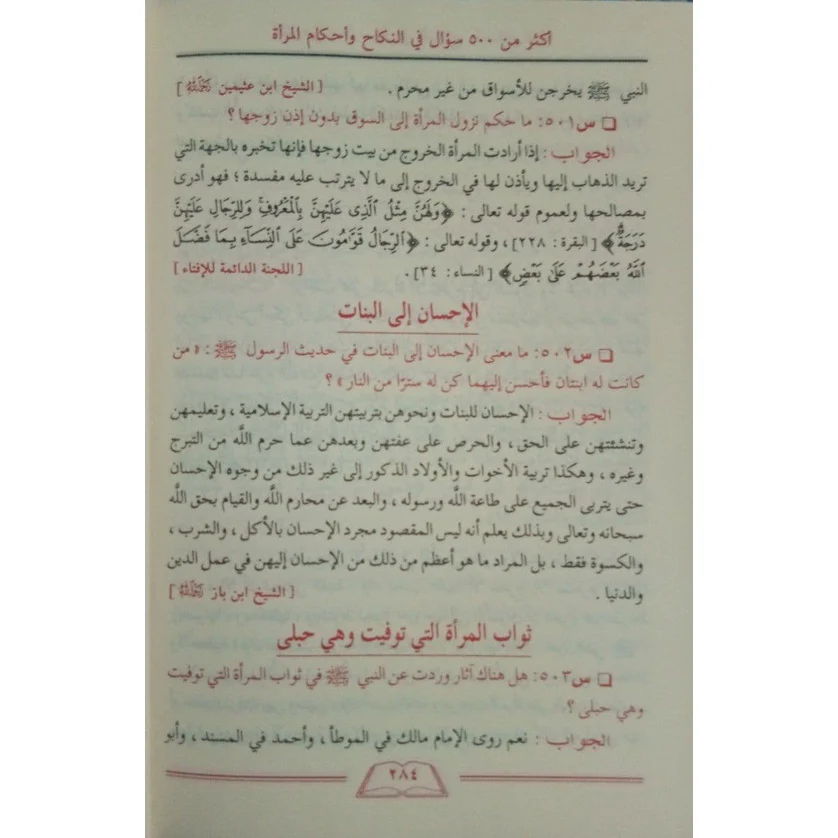 أكثر من ٥٠٠ سؤال في النكاح وأحكام المرأة
النبي ﷺ يخرجن للأسواق من غير محرم . [ الشيخ ابن عثيمين رَحِمَهُ اللَّهُ ]
❑ س٥٠١: ما حكم نزول المرأة إلى السوق بدون إذن زوجها ؟
الجواب : إذا أرادت المرأة الخروج من بيت زوجها فإنها تخبره بالجهة التي
تريد الذهاب إليها ويأذن لها في الخروج إلى ما لا يترتب عليه مفسدة ؛ فهو أدرى
بمصالحها ولعموم قوله تعالى : ﴿وَلَهُنَّ مِثْلُ الَّذِي عَلَيْهِنَّ بِالْمَعْرُوفِ وَلِلرِّجَالِ عَلَيْهِنَّ
دَرَجَةٌ﴾ [البقرة : ٢٢٨] ، وقوله تعالى : ﴿الرِّجَالُ قَوَّامُونَ عَلَى النِّسَاءِ بِمَا فَضَّلَ
اللَّهُ بَعْضَهُمْ عَلَى بَعْضٍ﴾ [النساء : ٣٤] . [ اللجنة الدائمة للإفتاء ]
الإحسان إلى البنات
❑ س٥٠٢: ما معنى الإحسان إلى البنات في حديث الرسول ﷺ : « من
كانت له ابنتان فأحسن إليهما كن له سترًا من النار » ؟
الجواب : الإحسان للبنات ونحوهن بتربيتهن التربية الإسلامية ، وتعليمهن
وتنشئتهن على الحق ، والحرص على عفتهن وبعدهن عما حرم اللَّه من التبرج
وغيره ، وهكذا تربية الأخوات والأولاد الذكور إلى غير ذلك من وجوه الإحسان
حتى يتربى الجميع على طاعة اللَّه ورسوله ، والبعد عن محارم اللَّه والقيام بحق اللَّه
سبحانه وتعالى وبذلك يعلم أنه ليس المقصود مجرد الإحسان بالأكل ، والشرب ،
والكسوة فقط ، بل المراد ما هو أعظم من ذلك من الإحسان إليهن في عمل الدين
والدنيا . [ الشيخ ابن باز رَحِمَهُ اللَّهُ ]
ثواب المرأة التي توفيت وهي حبلى
❑ س٥٠٣: هل هناك آثار وردت عن النبي ﷺ في ثواب المرأة التي توفيت
وهي حبلى ؟
الجواب : نعم روى الإمام مالك في الموطأ ، وأحمد في المسند ، وأبو
٢٨٤